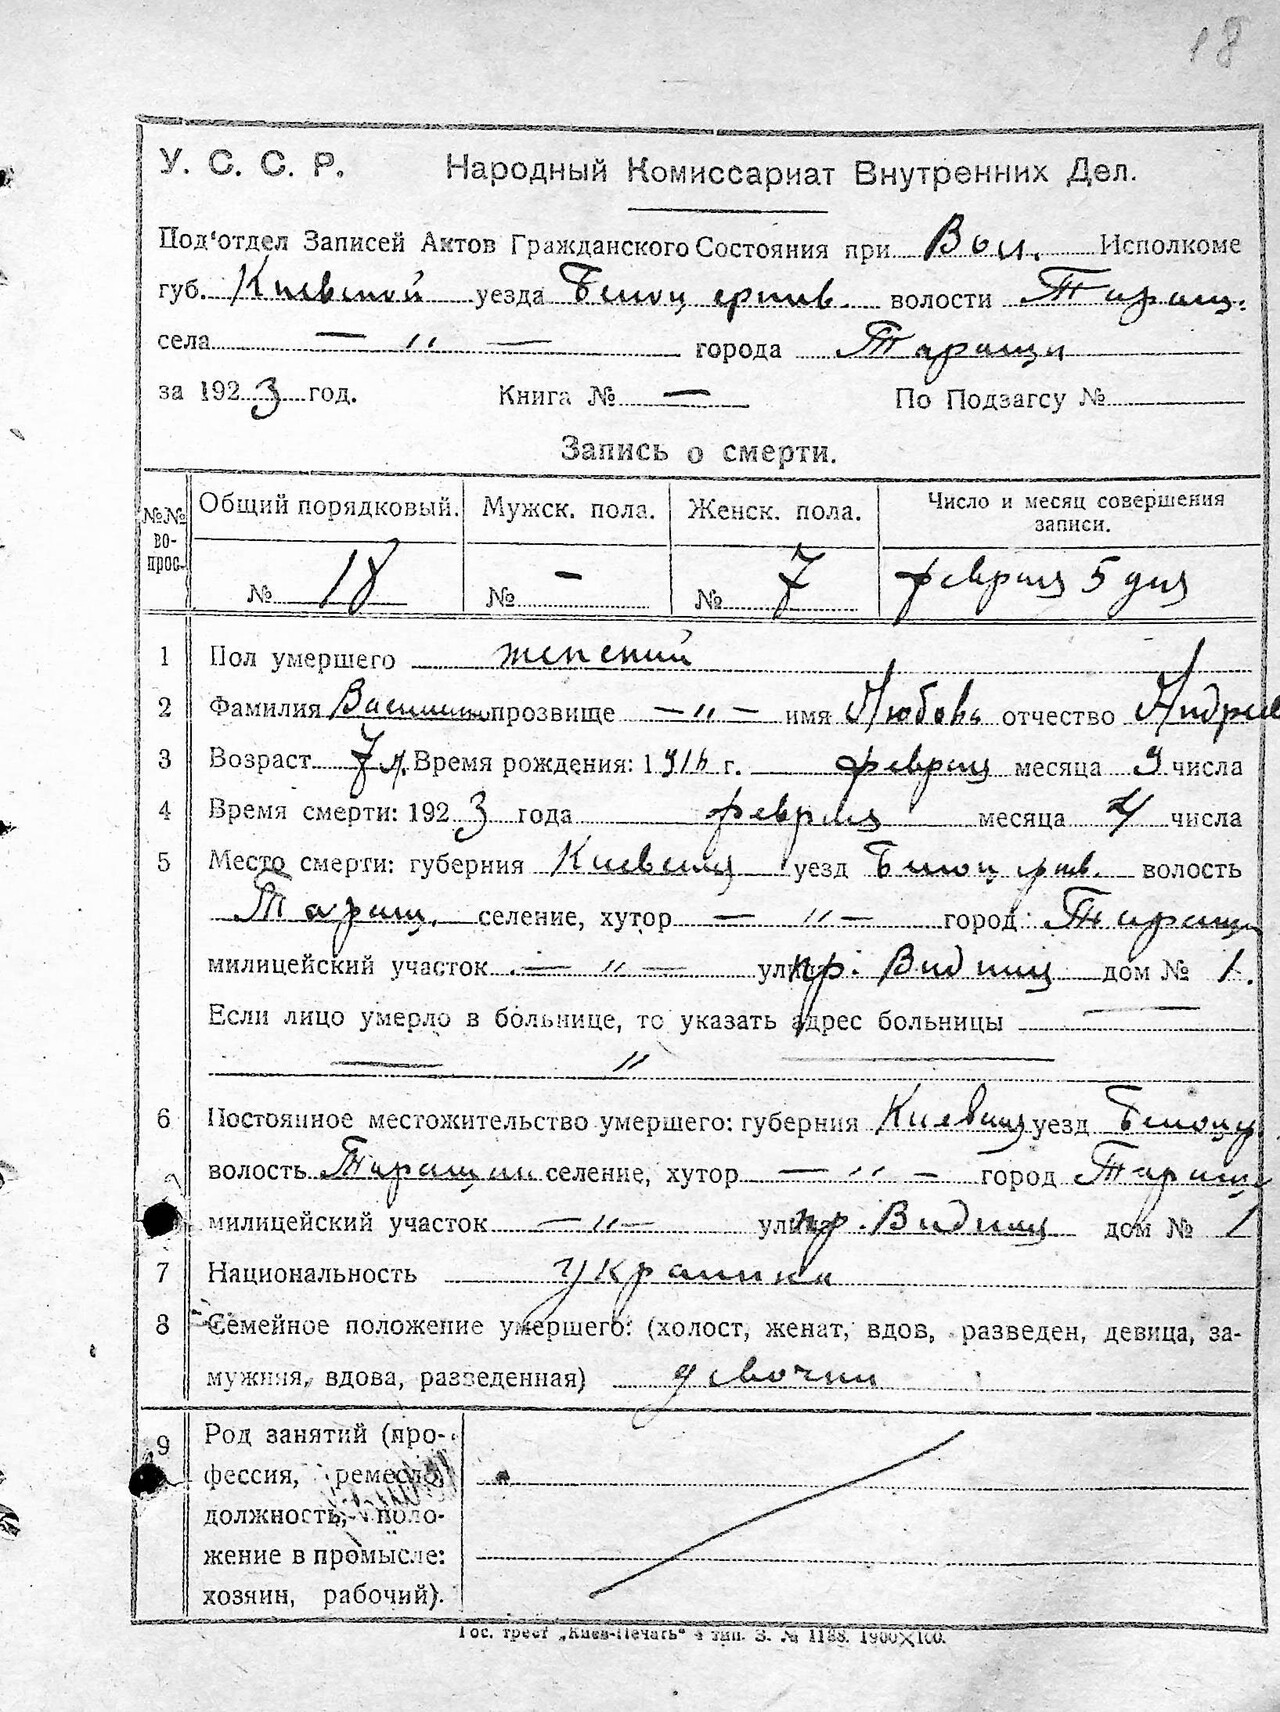 18
У. С. С. Р. Народный Комиссариат Внутренних Дел.
Под'отдел Записей Актов Гражданского Состояния при Вол. Исполкоме
губ. Киевской уезда Белоцерков. волости Таращ.
села — " — города Таращи
за 1923 год. Книга № — По Подзагсу №
Запись о смерти.
№№ во-прос. Общий порядковый. Мужск. пола. Женск. пола. Число и месяц совершения записи.
№ 18 № - № 7 февраля 5 дня
1 Пол умершего женский
2 Фамилия прозвище — " — имя Любовь отчество Андреев
3 Возраст 7 л. Время рождения: 1916 г. февраля месяца 9 числа
4 Время смерти: 1923 года февраля месяца 4 числа
5 Место смерти: губерния Киевская уезд Белоцерков. волость
Таращ. селение, хутор — " — город Тараща
милицейский участок — " — улица пр. дом № 1.
Если лицо умерло в больнице, то указать адрес больницы —
— " —
6 Постоянное местожительство умершего: губерния Киевская уезд Белоцер.
волость селение, хутор — " — город Тараща
милицейский участок — " — улица пр. дом № 1
7 Национальность украинка
8 Семейное положение умершего: (холост, женат, вдов, разведен, девица, за-
мужняя, вдова, разведенная) девочка
9 Род занятий (про-
фессия, ремесло,
должность, поло-
жение в промысле:
хозяин, рабочий).
Гос. трест „Киев-Печать“ 4 тип. З. № 1188. 1900×100.